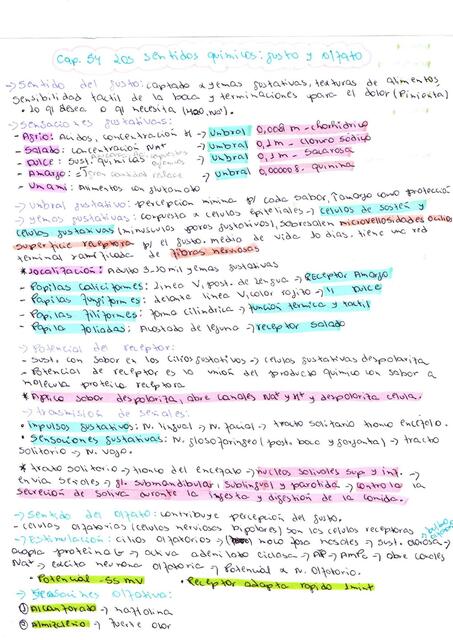 Cap. 54 Los sentidos químicos: gusto y olfato
→ Sentido del gusto: captado x yemas gustativas, texturas de alimentos
sensibilidad táctil de la boca y terminaciones para el dolor (Pimienta)
• lo q desea o q necesita (H2O, Na+).
→ Sensaciones gustativas:
- Agrio: Ácidos, concentración H → Umbral 0,0009 M - clorhídrico
- Salado: concentración Na+ → Umbral 0,1 M - cloruro sódico
- Dulce: Sust. químicas → Umbral 0,1 M - sacarosa
- Amargo: → Umbral 0,000008. quinina
- Umami: Alimentos con glutamato
→ Umbral gustativo: percepcion minima p/ cada sabor, ↑amargo como protección
→ Yemas gustativas: compuesto x celulas epiteliales → celulas de sosten y
celulas gustativas (minusculos poros gustativos), sobresalen microvellosidades o cilios
superficie receptora p/ el gusto. medio de vida 10 dias. tiene una red
terminal ramificada de fibras nerviosas
* Localización: Adulto 3-10 mil yemas gustativas
- Papilas caliciformes: linea V, post. de lengua → Receptor Amargo
- Papilas fungiformes: delante linea V, color rojito → " Dulce
- Papilas filiformes: forma cilindrica → función termica y tactil
- Papila foliadas: Acostado de lengua → receptor salado
→ Potencial del receptor:
- Sust. con sabor en los cilios gustativos → celulas gustativas despolariza
- Potencial de receptor es la unión del producto quimico con sabor a
molecula proteica receptora
* Agrico sabor despolariza, abre canales Na+ y H+ y despolariza celula.
→ Trasmisión de señales:
• Impulsos gustativos: N. lingual → N. facial → tracto solitario tronco encéfalo.
• Sensaciones gustativas: N. glosofaringeo (post. boca y garganta) → tracto
solitorio → N. vago.
* tracto solitorio → tronco del encefalo → nucleos salivales sup y inf. →
envia señales → gl. submandibular, sublingual y parotida → controla la
secreción de saliva durante la ingesta y digestión de la comida.
→ Sentido del olfato: contribuye percepción del gusto.
- celulas olfatorias (celulas nerviosas bipolares) son las celulas receptoras
→ Estimulación: cilios olfatorios → moco fosa nasales → sust. olorosa →
acopla proteina G → activa adenilato ciclasa → ATP → AMPc → abre canales
Na+ → excita neurona olfatoria → Potencial x N. olfatorio.
• Potencial -55 mV • Receptor adapta rapido 1 mint
→ Sensaciones olfativa:
① Alcanforado → naftalina
② Almizcleño → fuerte olor